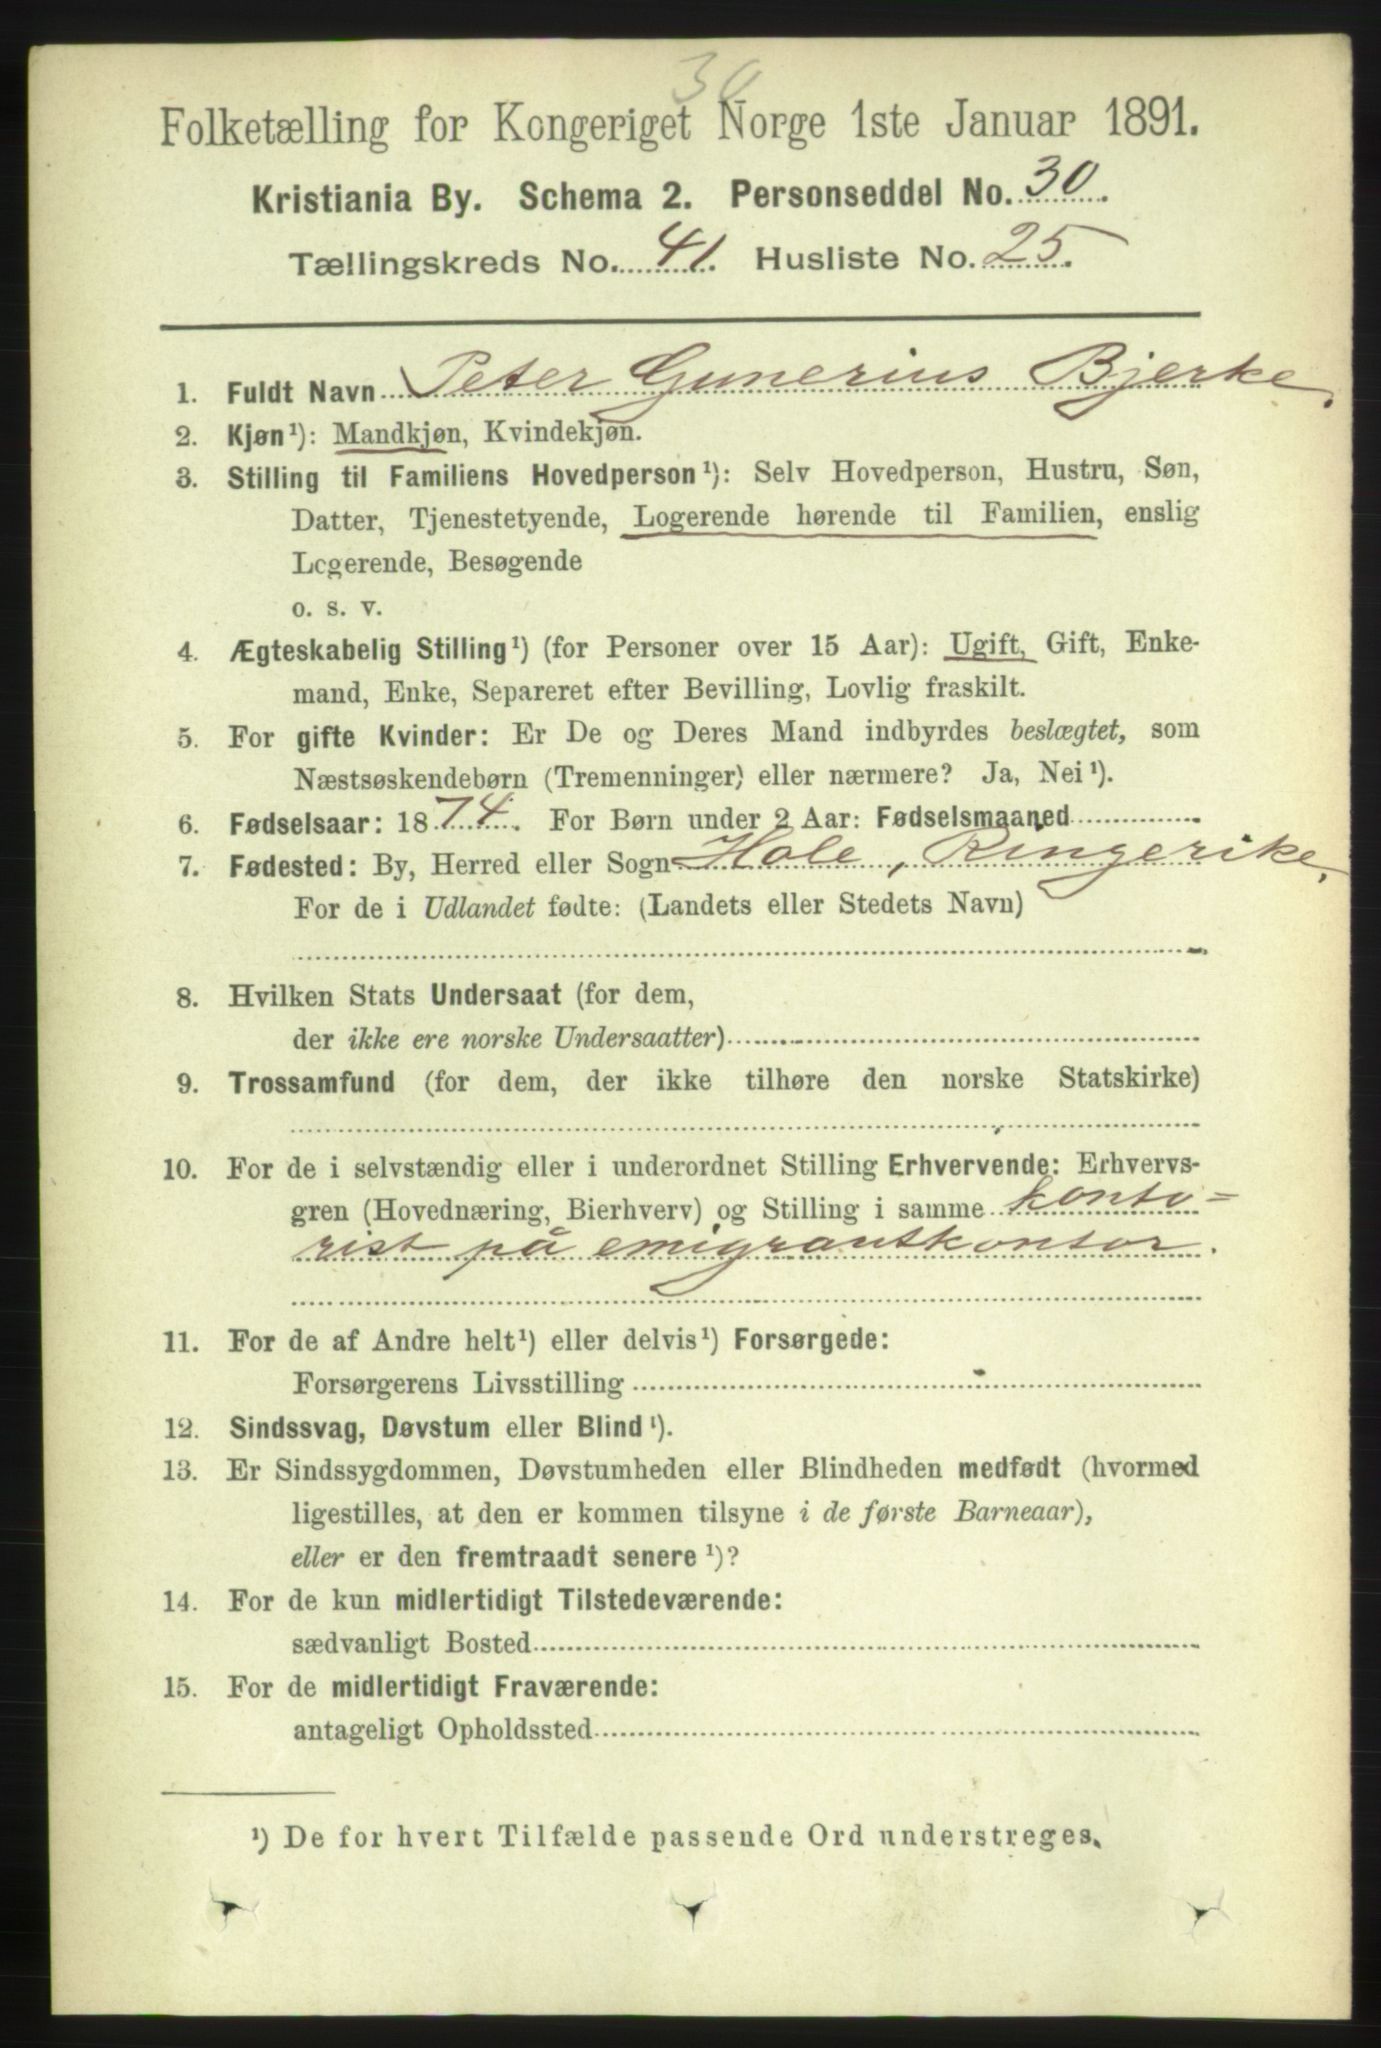 30
Folketælling for Kongeriget Norge 1ste Januar 1891.
Kristiania By. Schema 2. Personseddel No. 30.
Tællingskreds No. 41. Husliste No. 25.
1. Fuldt Navn Peter Gunerius Bjerke.
2. Kjøn¹): Mandkjøn, Kvindekjøn.
3. Stilling til Familiens Hovedperson¹): Selv Hovedperson, Hustru, Søn,
Datter, Tjenestetyende, Logerende hørende til Familien, enslig
Logerende, Besøgende
o. s. v.
4. Ægteskabelig Stilling¹) (for Personer over 15 Aar): Ugift, Gift, Enke-
mand, Enke, Separeret efter Bevilling, Lovlig fraskilt.
5. For gifte Kvinder: Er De og Deres Mand indbyrdes beslægtet, som
Næstsøskendebørn (Tremenninger) eller nærmere? Ja, Nei¹).
6. Fødselsaar: 1874. For Børn under 2 Aar: Fødselsmaaned
7. Fødested: By, Herred eller Sogn Hole, Ringerike.
For de i Udlandet fødte: (Landets eller Stedets Navn)
8. Hvilken Stats Undersaat (for dem,
der ikke ere norske Undersaatter)
9. Trossamfund (for dem, der ikke tilhøre den norske Statskirke)
10. For de i selvstændig eller i underordnet Stilling Erhvervende: Erhvervs-
gren (Hovednæring, Bierhverv) og Stilling i samme konto-
rist på emigrantkontor.
11. For de af Andre helt¹) eller delvis¹) Forsørgede:
Forsørgerens Livsstilling
12. Sindssvag, Døvstum eller Blind¹).
13. Er Sindssygdommen, Døvstumheden eller Blindheden medfødt (hvormed
ligestilles, at den er kommen tilsyne i de første Barneaar),
eller er den fremtraadt senere¹)?
14. For de kun midlertidigt Tilstedeværende:
sædvanligt Bosted
15. For de midlertidigt Fraværende:
antageligt Opholdssted
¹) De for hvert Tilfælde passende Ord understreges.